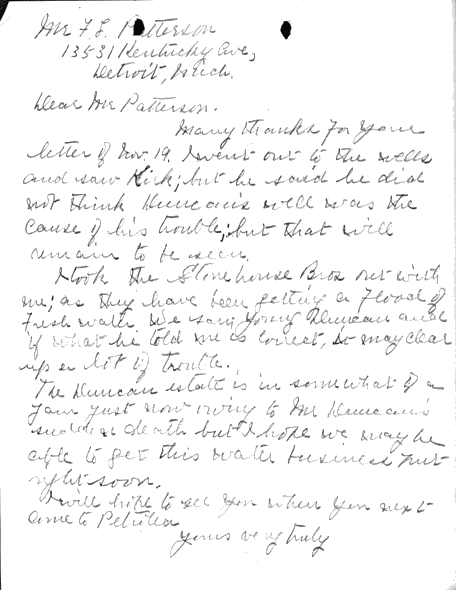 Mr F. L. Patterson
13531 Kentucky Ave,
Detroit, Mich.
Dear Mr Patterson.
Many thanks for your
letter of Nov. 19. I went out to the wells
and saw Kick; but he said he did
not think Duncan's well was the
cause of his trouble; but that will
remain to be seen.
I took the Stonehouse Bros out with
me; as they have been getting a flood of
fresh water. We saw young Duncan and
if what he told me is correct, it may clear
up a lot of trouble.
The Duncan estate is in somewhat of a
jam just now owing to Mr Duncan's
sudden death but I hope we may be
able to get this water business put
right soon.
I will hope to see you when you next
come to Petrolea
yours very truly